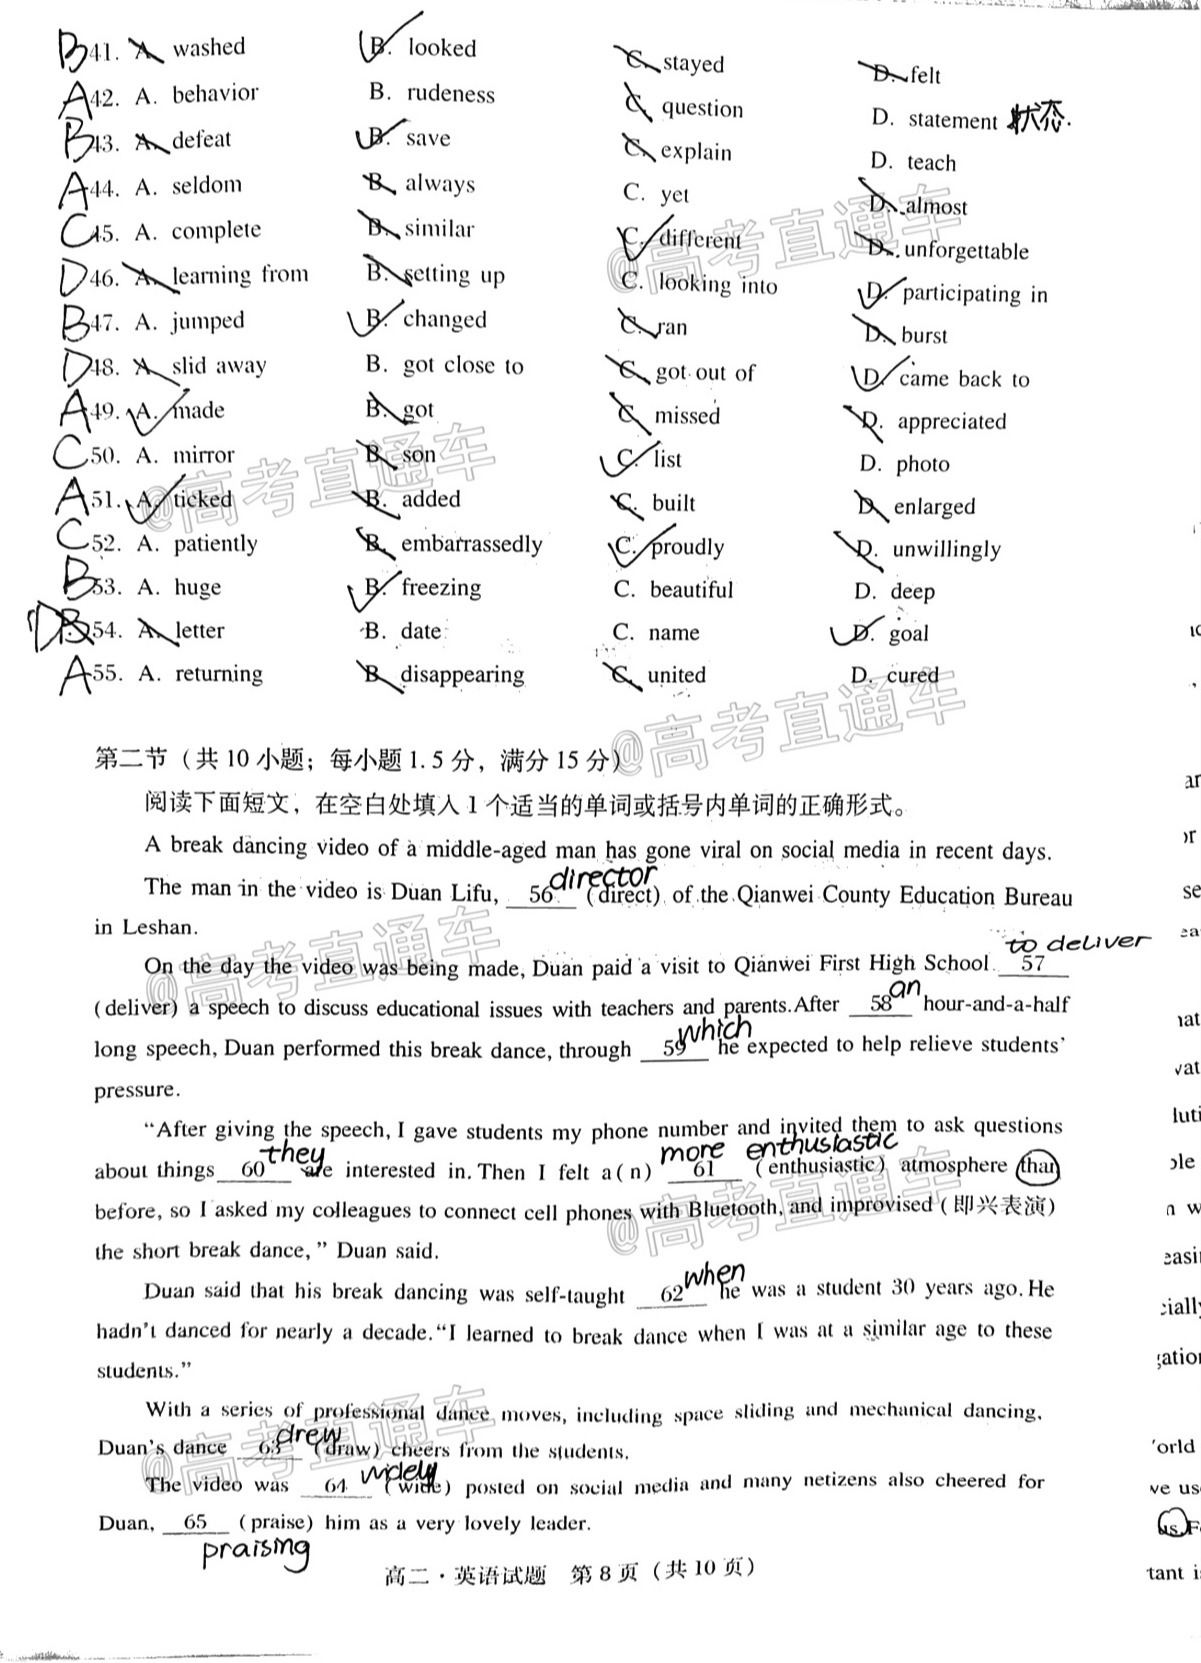 B 41. A. washed B. looked C. stayed D. felt
A 42. A. behavior B. rudeness C. question D. statement 状态.
B 43. A. defeat B. save C. explain D. teach
A 44. A. seldom B. always C. yet D. almost
C 45. A. complete B. similar C. different D. unforgettable
D 46. A. learning from B. setting up C. looking into D. participating in
B 47. A. jumped B. changed C. ran D. burst
D 48. A. slid away B. got close to C. got out of D. came back to
A 49. A. made B. got C. missed D. appreciated
C 50. A. mirror B. son C. list D. photo
A 51. A. ticked B. added C. built D. enlarged
C 52. A. patiently B. embarrassedly C. proudly D. unwillingly
B 53. A. huge B. freezing C. beautiful D. deep
D B 54. A. letter B. date C. name D. goal
A 55. A. returning B. disappearing C. united D. cured
@高考直通车
@高考直通车
@高考直通车
第二节（共 10 小题；每小题 1.5 分，满分 15 分）
阅读下面短文，在空白处填入 1 个适当的单词或括号内单词的正确形式。
A break dancing video of a middle-aged man has gone viral on social media in recent days.
The man in the video is Duan Lifu, 56 director (direct) of the Qianwei County Education Bureau
in Leshan.
to deliver
On the day the video was being made, Duan paid a visit to Qianwei First High School 57
(deliver) a speech to discuss educational issues with teachers and parents. After 58 an hour-and-a-half
long speech, Duan performed this break dance, through 59 which he expected to help relieve students'
pressure.
"After giving the speech, I gave students my phone number and invited them to ask questions
more enthusiastic
about things 60 they are interested in. Then I felt a(n) 61 (enthusiastic) atmosphere than
before, so I asked my colleagues to connect cell phones with Bluetooth, and improvised (即兴表演)
the short break dance," Duan said.
Duan said that his break dancing was self-taught 62 when he was a student 30 years ago. He
hadn't danced for nearly a decade. "I learned to break dance when I was at a similar age to these
students."
With a series of professional dance moves, including space sliding and mechanical dancing,
Duan's dance 63 drew (draw) cheers from the students.
The video was 64 widely (wide) posted on social media and many netizens also cheered for
Duan, 65 (praise) him as a very lovely leader.
praising
@高考直通车
@高考直通车
@高考直通车
高二·英语试题 第 8 页（共 10 页）